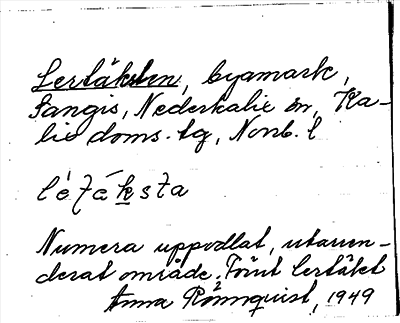 Lertäkten, byamark,
Sangis, Nederkalix sn, Ka-
lix doms. tg, Norrb. l
Numera uppodlat, utarren-
derat område. Förut lertäkt
Anna Rönnquist, 1949